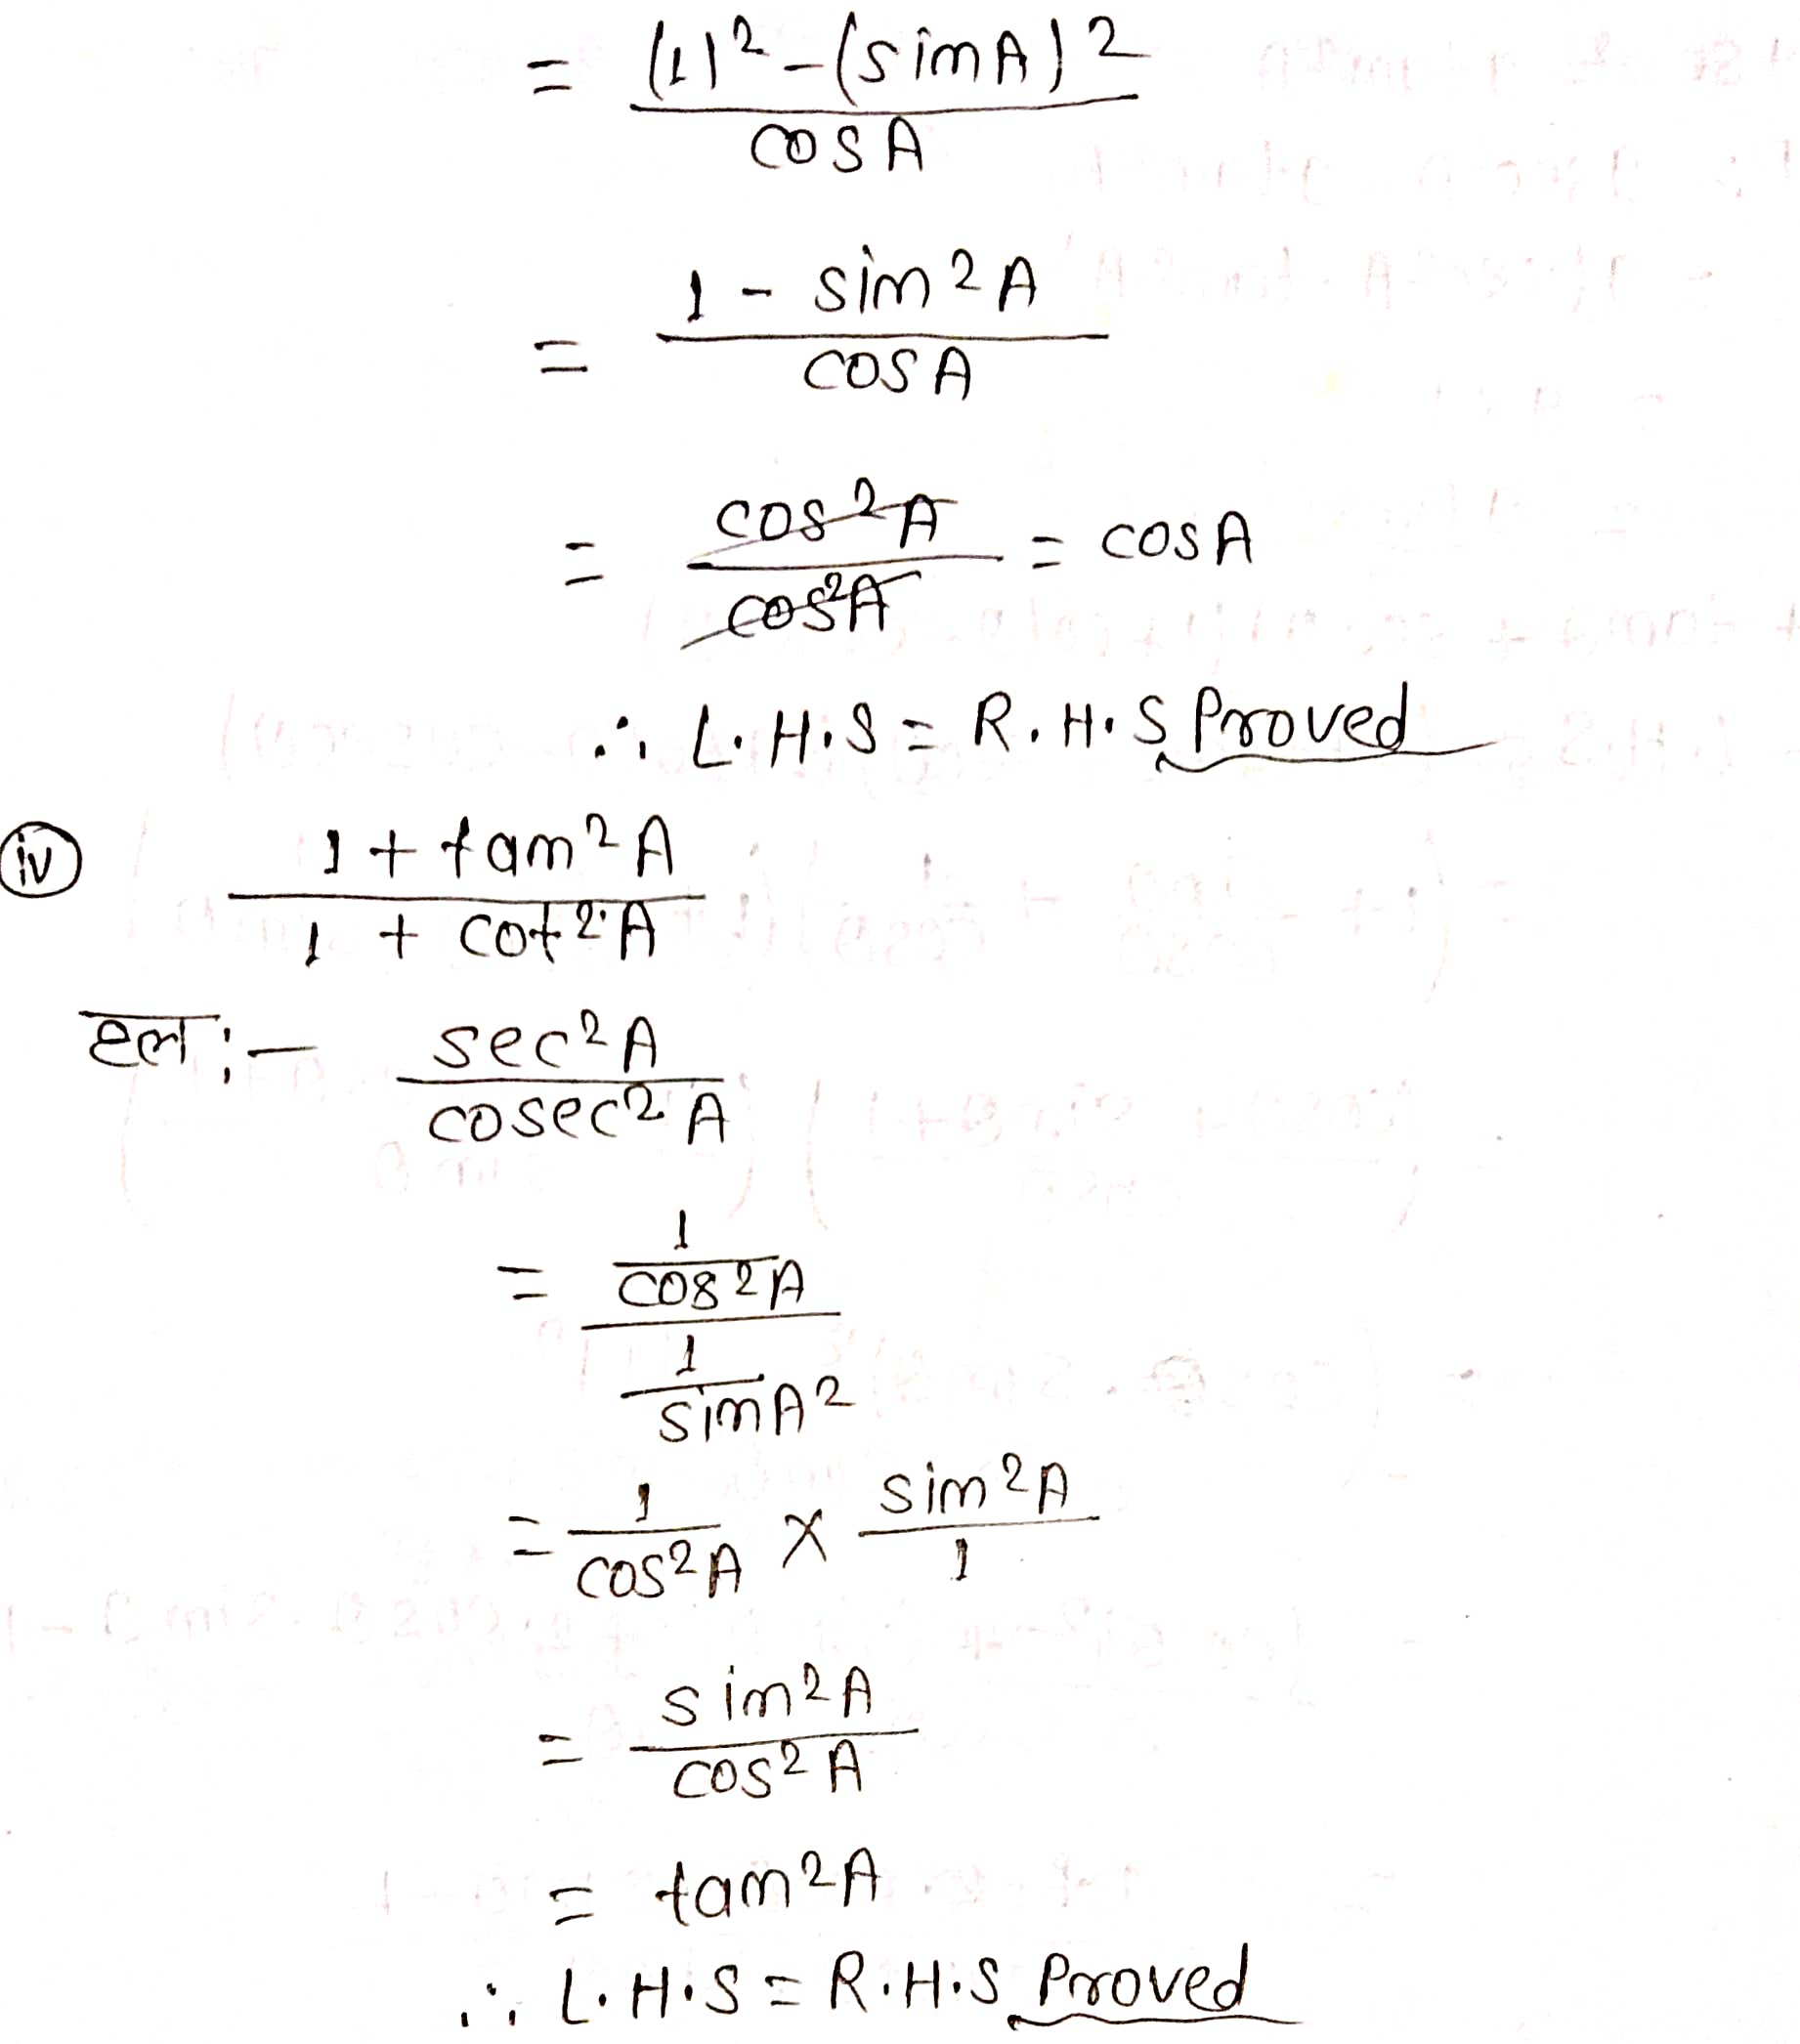 = (1)² - (sinA)² / cosA
= 1 - sin²A / cosA
= cos²A / cos²A = cosA
∴ L.H.S = R.H.S Proved
(iv) 1 + tan²A / 1 + cot²A
हल:- sec²A / cosec²A
= 1/cos²A / 1/sinA²
= 1/cos²A × sin²A/1
= sin²A / cos²A
= tan²A
∴ L.H.S = R.H.S Proved